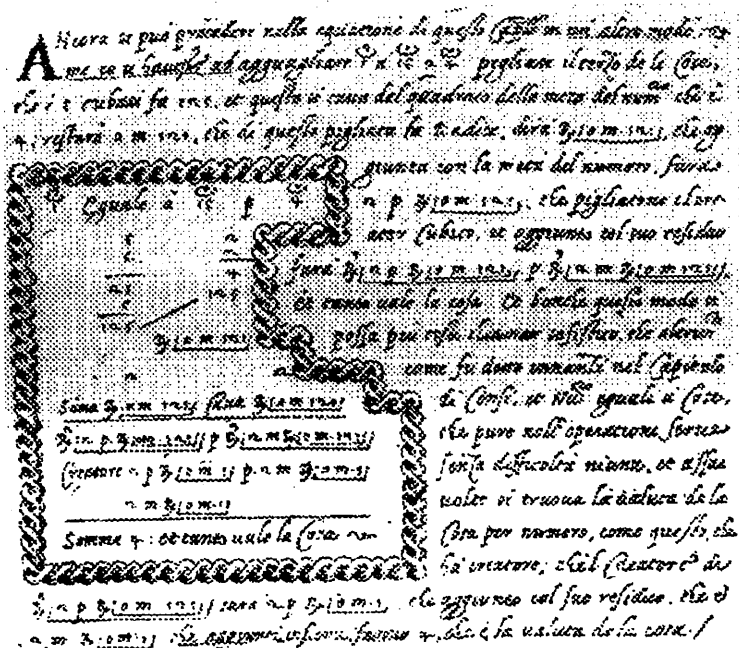 Ancora si può procedere nella equatione di questo in un altro modo. co
me se si havesse ad agguagliare pigliasi il terzo de le Cose,
che è 5 cubasi fa 125, et questo si cava del quadrato della metà del num.o che è
4; restarà 0 m 121, che di questo pigliata la radice, dirà R[0 m 121], che ag
giunta con la metà del numero, farà
2 p R[0 m 121], che pigliatone il cre-
ator Cubico, et aggiunto col suo residuo
farà R³[2 p R[0 m 121]] p R³[2 m R[0 m 121]],
et tanto vale la cosa. Et benche questo modo si
possa più tosto chiamar sofistico, che
come fu detto innanti nel Capitolo
di Censi, et Nu.ri eguali a Cose,
che pure nell'operatione serve
senza difficoltà niuna, et assai
volte si truova la valuta de la
Cosa per numero, come questo, che
ha creatore; che il Creatore di
R³[2 p R[0 m 121]] sarà 2 p R[0 m 1], che aggiunto col suo residuo, che è
2 m R[0 m 1] che aggiunti insieme fanno 4, che è la valuta de la cosa.
Eguale à 15 p 4
5 2
5 2
25 4
5 125
125
R[0 m 121]
2 2
Somma R[0 m 121] R[0 m 121]
R³[2 p R[0 m 121]] p R³[2 m R[0 m 121]]
Creatore 2 p R[0 m 1] p 2 m R[0 m 1]
2 m R[0 m 1]
Somma 4: et tanto vale la Cosa